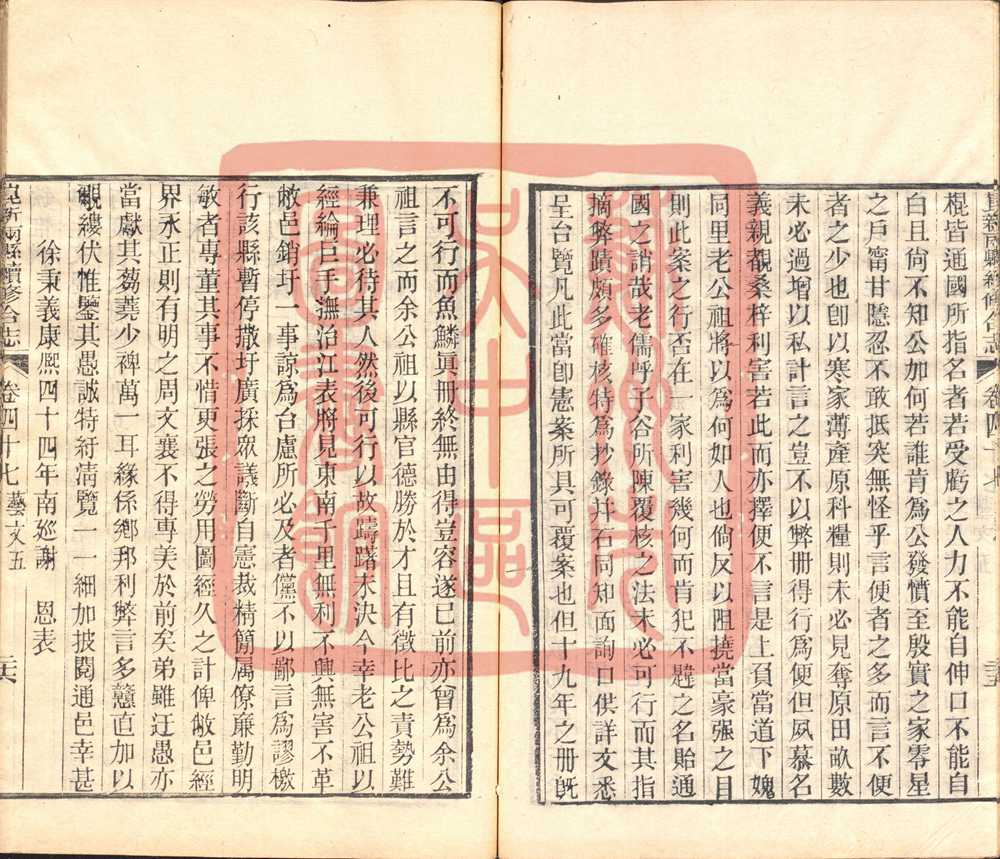 棍皆通國所指名者若受虧之人力不能自伸口不能自
白且尙不知公加何若誰肯爲公發憤至殷實之家零星
之戶甯甘隱忍不敢抵突無怪乎言便者之多而言不便
者之少也卽以寒家薄產原科糧則未必見奪原田畝數
未必過增以私計言之豈不以弊册得行爲便但夙慕名
義親覩桑梓利害若此而亦擇便不言是上負當道下媿
同里老公祖將以爲何如人也倘反以阻撓當豪强之目
則此案之行否在一家利害幾何而肯犯不韙之名貽通
國之誚哉老儒呼子谷所陳覆核之法未必可行而其指
摘弊蹟頗多確核特爲抄錄幷石同知面詢口供詳文悉
呈台覽凡此當卽憲案所具可覆案也但十九年之册旣
不可行而魚鱗眞册終無由得豈容遂已前亦曾爲余公
祖言之而余公祖以縣官德勝於才且有徵比之責勢難
兼理必待其人然後可行以故躊躇未決今幸老公祖以
經綸巨手撫治江表將見東南千里無利不興無害不革
敝邑銷圩一事諒爲台慮所必及者儻不以鄙言爲謬檄
行該縣暫停撒圩廣採眾議斷自憲裁精簡屬僚廉勤明
敏者專董其事不惜更張之勞用圖經久之計俾敝邑經
界永正則有明之周文襄不得專美於前矣弟雖迂愚亦
當獻其芻蕘少裨萬一耳緣係鄉邦利弊言多戇直加以
覼縷伏惟鑒其愚誠特紆清覽一一細加披閱通邑幸甚
徐秉義康熙四十四年南廵謝 恩表
崑新兩縣續修合志 卷四十七 藝文五 二六